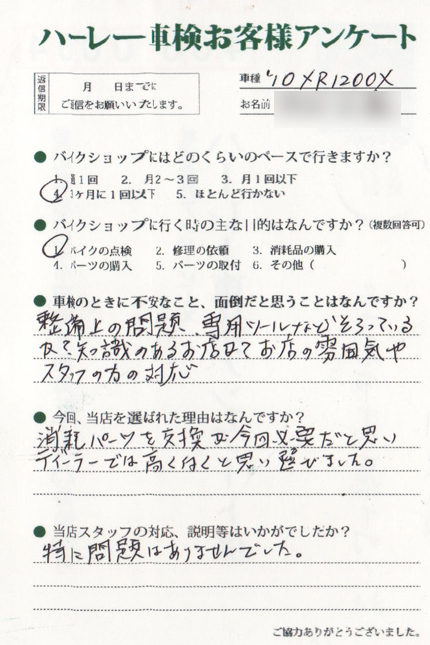 ハーレー車検お客様アンケート
返信期限
月 日までに
ご返信をお願いいたします。
車種 '10 XR1200X
お名前
● バイクショップにはどのくらいのペースで行きますか?
1. 週1回 2. 月2~3回 3. 月1回以下
4. 3ヶ月に1回以下 5. ほとんど行かない
● バイクショップに行く時の主な目的はなんですか?(複数回答可)
1. バイクの点検 2. 修理の依頼 3. 消耗品の購入
4. パーツの購入 5. パーツの取付 6. その他( )
● 車検のときに不安なこと、面倒だと思うことはなんですか?
整備上の問題、専用ツールなどそろっている
及び知識のあるお店なでお店の雰囲気や
スタッフの方の対応
● 今回、当店を選ばれた理由はなんですか?
消耗パーツを交換が今回必要だと思い
ディーラーでは高くつくと思い選びました。
● 当店スタッフの対応、説明等はいかがでしたか?
特に問題はありませんでした。
ご協力ありがとうございました。